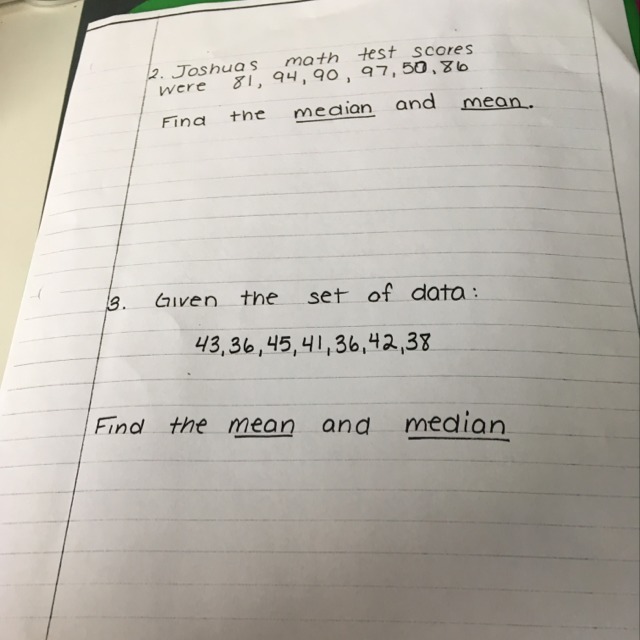 2. Joshuas math test scores
were 81, 94, 90, 97, 50, 86
Find the median and mean.
3. Given the set of data:
43, 36, 45, 41, 36, 42, 38
Find the mean and median